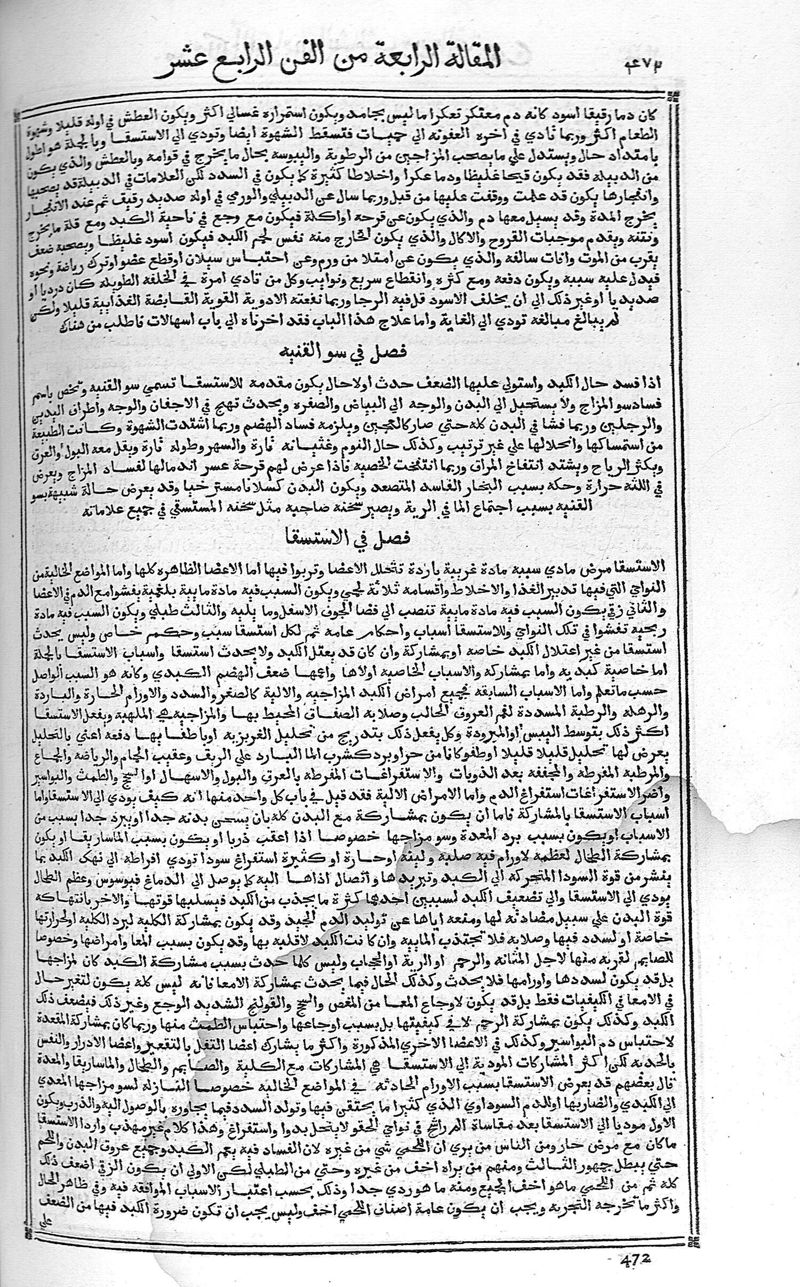 المقالة الرابعة من الفن الرابع عشر
٤٧٢
كان دما رقيقا اسود كانه دم معتكر تعكرا ما ليس بجامد ويكون استمراره غسالي اكثر ويكون العطش في اوله قليلا وشهوة
الطعام اكثر وربما تادي في اخره العفونه الي حميات فتسقط الشهوة ايضا وتودي الي الاستسقا وبالجملة هو اطول
بامتداد حال ويستدل علي ما يصحب المزاجين من الرطوبة واليبوسة بحال ما يخرج في قوامه وبالعطش والذي يكون
من الدبيلة فقد يكون قيحا غليظا ودما عكرا واخلاطا كثيرة كما يكون في السدد لكن العلامات في الدبيلة قد يصحبها
وانفجارها يكون قد علمت ووقفت عليها من قبل وربما سال عن الدبيلي والورمي في اوله صديد رقيق ثم عند الانفجار
يخرج المدة وقد يسيل معها دم والذي يكون عن قرحه او اكلة فيكون مع وجع في ناحية الكبد ومع قلة ما يخرج
ونتنه وبقدم موجبات القروح والاكال والذي يكون الخارج منه نفس لحم الكبد فيكون اسود غليظا وبصحبه ضعف
بقرب من الموت واوقات سالفه والذي يكون عن امتلا من ورم وعن احتباس سيلان او قطع عضو او ترك رياضة ونحوه
فيدل عليه سببه ويكون دفعه ومع كثرة وانقطاع سريع ونوايب وكل من تادي امره في الخلفة الطويله كان درديا او
صديديا او غير ذلك الي ان يخلف الاسود قل فيه الرجا وربما نفعته الادوية القوية القابضة الغذايية قليلا ولكن
لم يبالغ مبالغه تودي الي الغاية واما علاج هذا الباب فقد اخرناه الي باب اسهالات فاطلب من هناك
فصل في سو القنيه
اذا فسد حال الكبد واستولي عليها الضعف حدث اولا حال يكون مقدمه للاستسقا تسمي سو القنيه وتخص باسم
فساد سو المزاج ولا يستحيل الي البدن والوجه الي البياض والصفره ويحدث تهيج في الاجفان والوجه واطراف اليدين
والرجلين وربما فشا في البدن كله حتي صار كالعجين ويلزمه فساد الهضم وربما اشتدت الشهوة وكانت الطبيعة
من استمساكها وانحلالها علي غير ترتيب وكذلك حال النوم وغثيانه تارة والسهر وطوله تارة ويقل معه البول والعرق
ويكثر الرياح ويشتد انتفاخ المراق وربما انتفخت الخصيه فاذا عرض لهم قرحة عسر اندمالها لفساد المزاج ويعرض
في اللثه حرارة وحكه بسبب البخار الفاسد المتصعد ويكون البدن كسلانا مسترخيا وقد يعرض حالة شبيهة بسو
القنيه بسبب اجتماع الما في الرية ويصير سحنه صاحبه مثل سحنه المستسقي في جميع علاماته
فصل في الاستسقا
الاستسقا مرض مادي سببه مادة غريبة باردة تتخلل الاعضا وتربوا فيها اما الاعضا الظاهره كلها واما المواضع الخاليه من
النواي التي فيها تدبير الغذا والاخلاط واقسامه ثلاثة لحمي ويكون السبب فيه مادة مايية بلغمية يفشوا مع الدم في الاعضا
والثاني زقي يكون السبب فيه مادة مايية تنصب الي فضا الجوف الاسفل وما يليه والثالث طبلي ويكون السبب فيه مادة
ريحيه تفشوا في تلك النواي وللاستسقا أسباب واحكام عامه ثم لكل استسقا سبب وحكم خاص وليس يحدث
استسقا من غير اعتلال الكبد خاصه او بمشاركة وان كان قد يعتل الكبد ولا يحدث استسقا واسباب الاستسقا بالجملة
اما خاصية كبديه واما بمشاركة والاسباب الخاصيه اولاها واعمها ضعف الهضم الكبدي وكانه هو السبب الواصل
حسب ما تعلم واما الاسباب السابقه فجميع امراض الكبد المزاجيه والالية كالصغر والسدد والاورام الحارة والباردة
والرهله والرطبة المسددة لفم العروق الجالب وصلابه الصفاق المحيط بها والمزاجيه هي الملهبه ويفعل الاستسقا
اكثر ذلك بتوسط اليبس او المبرودة وكل يفعل ذلك بتدريج من تحليل الغريزيه او باطفايها دفعه اعني بالتحليل
يعرض لها تحليل قليلا قليلا او طفو كانا من حر او برد كشرب الما البارد علي الريق وعقيب الحمام والرياضه والجماع
والمرطبه المفرطه والمجففه بعد الذوبات والاستفراغات المفرطه بالعرق والبول والاسهال او السحج والطمث والبواسير
واضر الاستفراغات استفراغ الدم واما الامراض الالية فقد قيل في باب كل واحد منها انه كيف يودي الي الاستسقا واما
اسباب الاستسقا بالمشاركة فاما ان يكون بمشاركة مع البدن كله بان يسخن بدنه جدا او يبرد جدا بسبب من
الاسباب او يكون بسبب برد المعدة وسو مزاجها خصوصا اذا اعقب ذربا او يكون بسبب الماساريقا او يكون
بمشاركة الطحال لعظمه لاورام فيه صلبه ولينه او حارة او كثيرة استفراغ سودا تودي افراطه الي نهك الكبد بما
ينشر من قوة السودا المتحركة الي الكبد وتبريدها واتصال اذاها اليه كما يوصل الي الدماغ فيوسوس وعظم الطحال
يودي الي الاستسقا والي تضعيف الكبد لسببين احدهما كثرة ما يجذب من الكبد فيسلبها قوتها والاخر بانتهاكه
قوة البدن علي سبيل مضادته لها ومنعه اياها عن توليد الدم الجيد وقد يكون بمشاركة الكلية لبرد الكليه او لحرارتها
خاصة او لسدد فيها وصلابه فلا تجتذب المايية وان كانت الكبد لا قلبه بها وقد يكون بسبب المعا وامراضها وخصوصا
للصايم لقربه منها لاجل المثانه والرحم او الرية او الحجاب وليس كلما حدث بسبب مشاركة الكبد كان لمزاجها
بل قد يكون لسددها واورامها فلا يحدث وكذلك الحال فيما يحدث بمشاركة الامعا فانه ليس كله يكون لتغير حال
في الامعا في الكيفيات فقط بل قد يكون لاوجاع المعا من المغص والسحج والقولنج الشديد الوجع وغير ذلك فيضعف ذلك
الكبد وكذلك يكون بمشاركة الرحم لا في كيفيتها بل بسبب اوجاعها واحتباس الطمث منها وربما كان بمشاركة المقعدة
لاحتباس دم البواسير وكذلك في الاعضا الاخري المذكورة واكثر ما يشارك اعضا الثفل بالتقعير واعضا الادرار والنفس
بالحدبه لكن اكثر المشاركات المودية الي الاستسقا هي المشاركات مع الكلية والصايم والطحال والماساريقا والمعدة
قال بعضهم قد يعرض الاستسقا بسبب الاورام الحادثه في المواضع الخاليه خصوصا النازله لسو مزاجها المعدي
الي الكبدي والضار بها او الدم السوداوي الذي كثيرا ما يحتقن فيها وتولد السدد فيما يجاوره بالوصول اليه والذرب ويكون
الاول موديا الي الاستسقا بعد مقاساة الم راسخ في نواي الحقو لا ينحل بدوا واستفراغ وهذا كلام غير مهذب واردا الاستسقا
ما كان مع مرض حار ومن الناس من يري ان اللحمي شر من غيره لان الفساد فيه يعم الكبد وجميع عروق البدن واللحم
حتي يبطل جمهور الثالث ومنهم من يراه اخف من غيره وحتي من الطبلي لكن الاولي ان يكون الزقي اضعف ذلك
كله ثم من اللحمي ما هو اخف الجميع ومنه ما هو ردي جدا وذلك بحسب اعتبار الاسباب الموافقه فيه وفي ظاهر الحال
واكثر ما تخرجه التجربه ويجب ان يكون عامة اصناف اللحمي اخف وليس يجب ان تكون ضرورة الكبد فيها من الضعف
علي
472